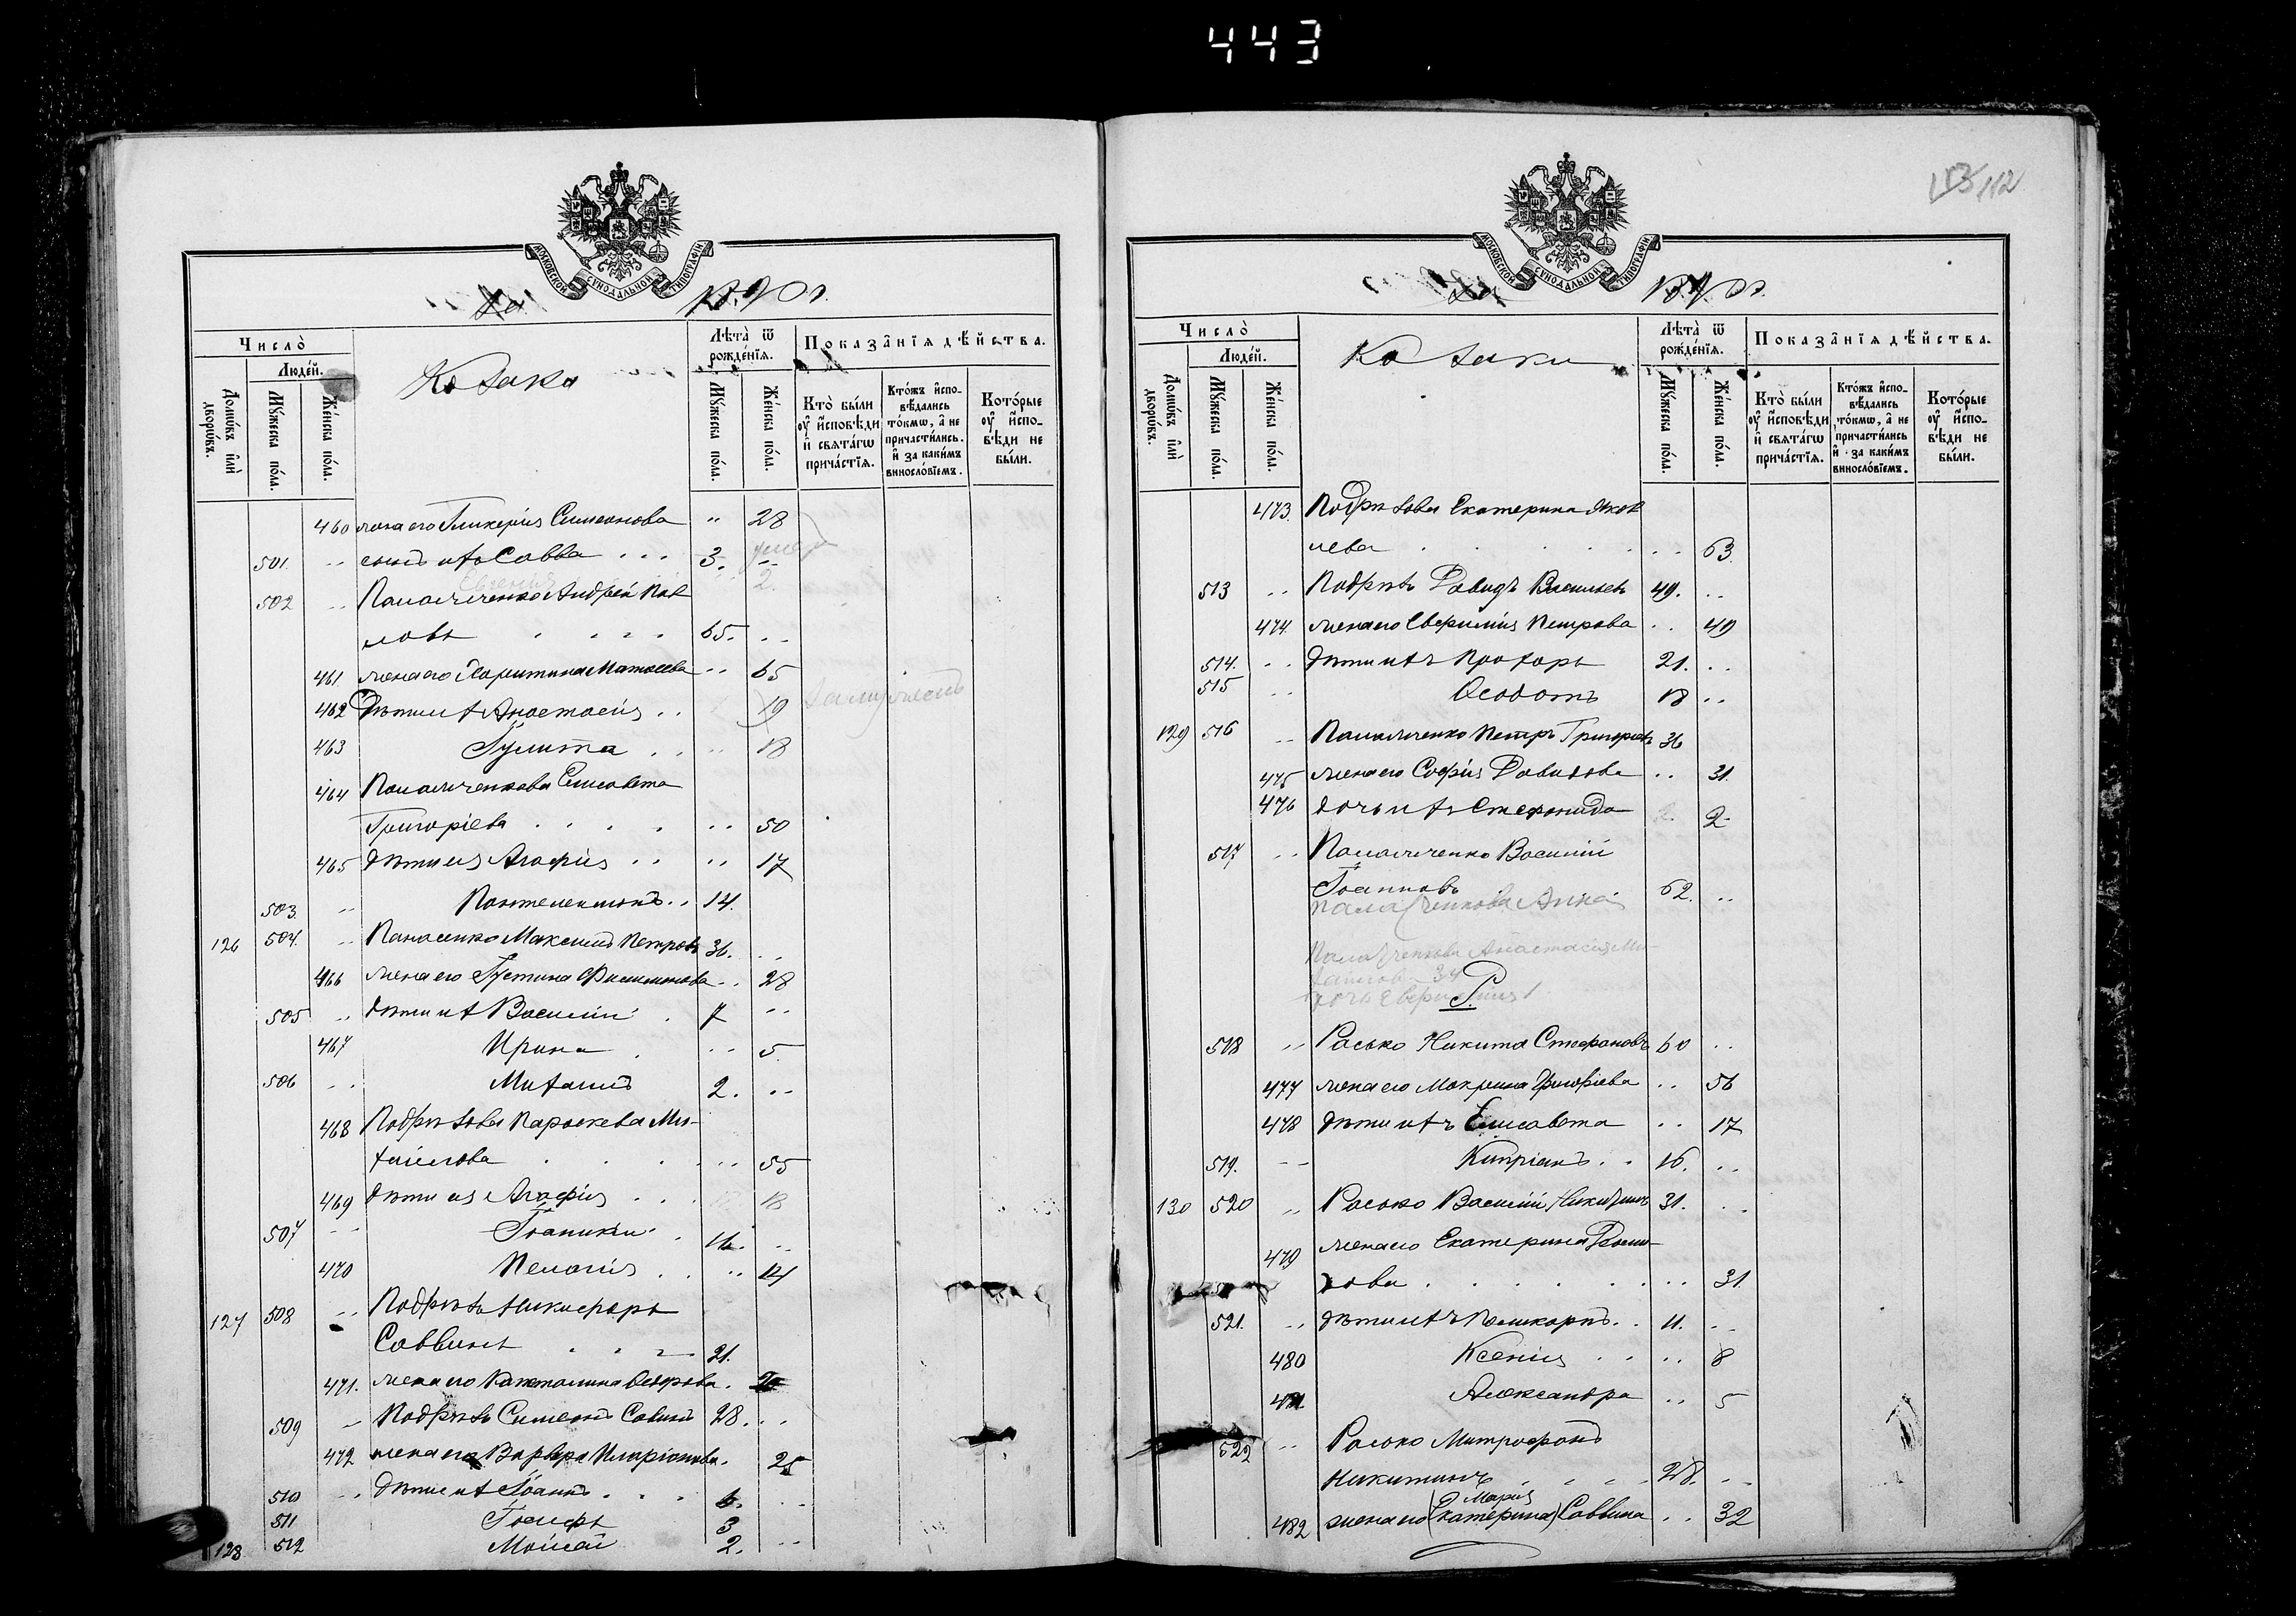 443
113 112
МОСКОВСКОЙ СѴНОДАЛЬНОЙ ТИПОГРАФІИ
За 1890 г.
Число̀
Люде́й.
Домѡ́въ и҆лѝ дворѡ́въ.
Мꙋ́жеска по́ла.
Же́нска по́ла.
Козаки
Лѣта̀ ѿ рожде́нїѧ.
Мꙋ́жеска по́ла.
Же́нска по́ла.
Показа̑нїѧ дѣ́йства.
Кто̀ бы́ли ᲂу҆ и҆сповѣди и҆ свѧта́гѡ прича́стїѧ.
Кто́жъ и҆сповѣ́дались то́кмѡ, а҆ не причасти́лись. и҆ за каки́мъ винослові́емъ.
Кото́рые ᲂу҆ и҆сповѣди не бы́ли.
460 жена его Гликерія Симеонова " 28
501. " сынъ ихъ Савва . . . 3. умер
Евгенія 2.
502 " Паламченко Андрей Пав
ловъ . . . . 65. "
461. жена его Харитина Матѳеева " 65
462 Дѣти ихъ Анастасія . . 19 замужемъ
463 Іулитта . . " 18
464 Паламченкова Елисавета
Григоріева . . . . " 50
465 дѣти ея Агафія . . " 17
503. " Пантелеимонъ . . 14.
126 504. " Панасенко Максимъ Петровъ 36. "
466 жена его Іустина Филимонова . . 28
505 " дѣти ихъ Василій . 7 "
467 Ирина . " 5.
506 " Михаилъ 2. "
468 Подрѣзова Параскева Ми-
хаилова . . . . " 55
469 дѣти ея Агафія . . . 18
507 " Іоаникій . 16. "
470 Пелагія . . " 14
127 508 " Подрѣзъ Никифоръ
Саввинъ . . . 21.
471. жена его Капитолина Ѳедорова . 20
509 " Подрѣзъ Симеонъ Савинъ 28. . .
472 жена его Варвара Иларіонова. 25
510 " дѣти ихъ Іоаннъ . . . 6. . .
511 Іосифъ 3
128 512 Моисей 2. "
МОСКОВСКОЙ СѴНОДАЛЬНОЙ ТИПОГРАФІИ
За 1890 г.
Число̀
Люде́й.
Домѡ́въ и҆лѝ дворѡ́въ.
Мꙋ́жеска по́ла.
Же́нска по́ла.
Козаки
Лѣта̀ ѿ рожде́нїѧ.
Мꙋ́жеска по́ла.
Же́нска по́ла.
Показа̑нїѧ дѣ́йства.
Кто̀ бы́ли ᲂу҆ и҆сповѣди и҆ свѧта́гѡ прича́стїѧ.
Кто́жъ и҆сповѣ́дались то́кмѡ, а҆ не причасти́лись и҆ за каки́мъ винослові́емъ.
Кото́рые ᲂу҆ и҆сповѣди не бы́ли.
473. Подрѣзова Екатерина Яков
лева . . . . . . 63.
513 " Подрѣзъ Давидъ Васильевъ 49. . .
474. жена его Евфимія Петрова . . 49
514. " дѣти ихъ Прохоръ 21. . .
515 " Ѳеодотъ 18 . .
129 516 " Паламченко Петръ Григорьевъ 36
475 жена его Софія Давидова . . 31.
476 дочь ихъ Стефанида 2
517 " Паламченко Василій
Іоанновъ 62. . .
Паламченкова Анна
Паламченкова Анастасія Ми-
хаилова 34
дочь Евфимія 1
Р.
518 " Расько Никита Стефановъ 60 . .
477 жена его Макрина Григоріева . . 56
478 дѣти ихъ Елисавета . . 17
519. " Кипріанъ . . 16. . .
130 520 " Расько Василій Никитинъ 31. . .
479 жена его Екатерина
хова . . . . . . . 31
521. " дѣти ихъ Поликарпъ . . 11. . .
480 Ксенія . . . . 8
481 Александра . . 5
522 " Расько Митрофанъ
Никитинъ . . . . 28. "
Марія
482 жена его (Екатерина) Саввина . . 32